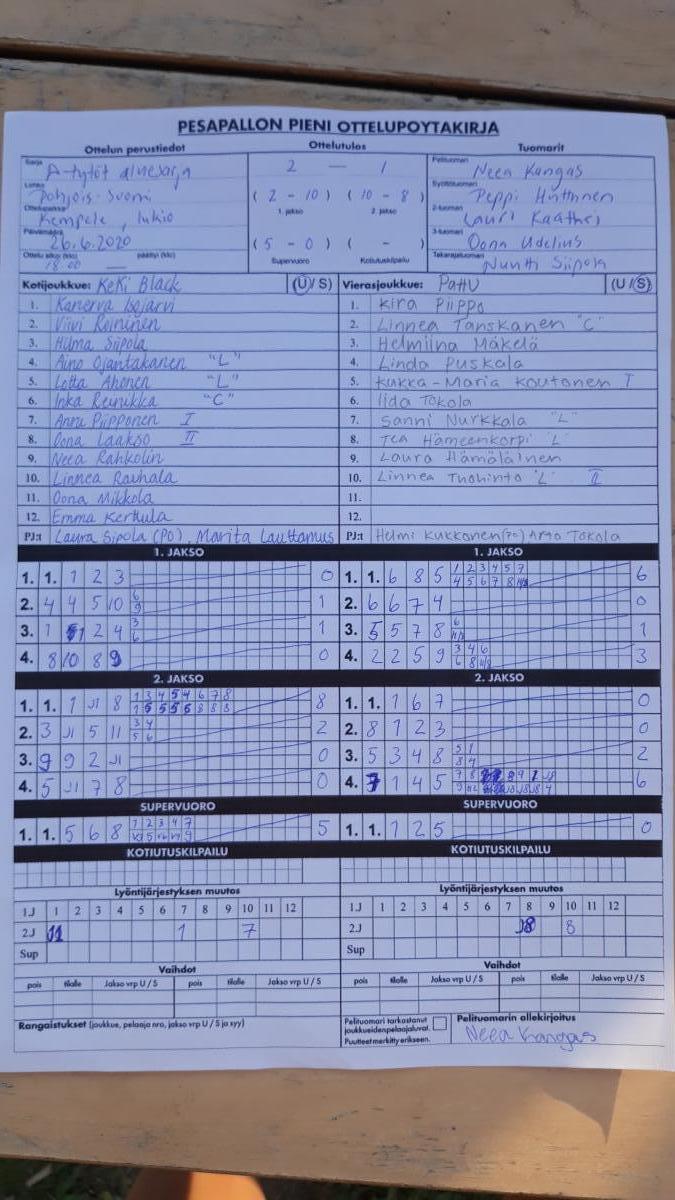 PESÄPALLON PIENI OTTELUPÖYTÄKIRJA
Ottelun perustiedot Ottelutulos Tuomarit
Sarja A-tytöt aluesarja 2 — 1 Pelituomari Neea Kangas
Lohko Pohjois-Suomi ( 2 - 10 ) ( 10 - 8 ) Syöttötuomari Peppi
Ottelupaikka Kempele, lukio 1. jakso 2. jakso 2-tuomari Lauri
Päivämäärä 26.6.2020 ( 5 - 0 ) ( - ) 3-tuomari Oona Udelius
Ottelu alkoi (klo) 18.00 päättyi (klo) — Supervuoro Kotiutuskilpailu Takarajatuomari Siipola
Kotijoukkue: KeKi Black (U/ S) Vierasjoukkue: PattU (U / S)
1. Kanerva Isojärvi 1. Kira Piippo
2. Viivi Roininen 2. Linnea Tanskanen "C"
3. Hilma Siipola 3. Helmiina Mäkelä
4. Aino Ojantakanen "L" 4. Linda Puskala
5. Lotta Ahonen "L" 5. Kukka-Maria Koutonen I
6. Inka Reinukka "C" 6. Iida Tokola
7. Anni Piipponen I 7. Sanni Nurkkala "L"
8. Oona Laakso II 8. Tea Hämeenkorpi "L"
9. Neea Rahkolin 9. Laura Hämäläinen
10. Linnea Rauhala 10. Linnea "L" II
11. Oona Mikkola 11.
12. Emma Kerttula 12.
PJ:t Laura Sipola (PO), Marita Lauttamus PJ:t Helmi Kukkonen (PO) Arto Tokola
1. JAKSO 1. JAKSO
1. 1. 1 2 3 0 1. 1. 6 8 5 1 2 3 4 5 7 6
2. 4 4 5 10 6 1 2. 6 6 7 4 0
3. 1 2 4 3 1 3. 5 5 7 8 6 1
4. 8 10 8 9 0 4. 2 2 5 9 3 4 6 3
2. JAKSO 2. JAKSO
1. 1. 1 J1 8 1 3 4 5 4 6 7 8 8 1. 1. 1 6 7 0
2. 3 J1 5 11 3 4 2 2. 8 1 2 3 0
5 6
3. 9 9 2 J1 0 3. 5 3 4 8 5 1 2
8 4
4. 5 J1 7 8 0 4. 7 1 4 5 6
SUPERVUORO SUPERVUORO
1. 1. 5 6 8 1 2 3 4 7 5 1. 1. 1 2 5 0
KOTIUTUSKILPAILU KOTIUTUSKILPAILU
Lyöntijärjestyksen muutos Lyöntijärjestyksen muutos
1.J 1 2 3 4 5 6 7 8 9 10 11 12 1.J 1 2 3 4 5 6 7 8 9 10 11 12
2.J 11 1 7 2.J J8 8
Sup Sup
Vaihdot Vaihdot
pois tilalle Jakso vrp U / S pois tilalle Jakso vrp U / S pois tilalle Jakso vrp U / S pois tilalle Jakso vrp U / S
Rangaistukset (joukkue, pelaaja nro, jakso vrp U / S ja syy) Pelituomari tarkastanut Pelituomarin allekirjoitus
joukkueidenpelaajaluval.
Puutteet merkitty erikseen. Neea Kangas